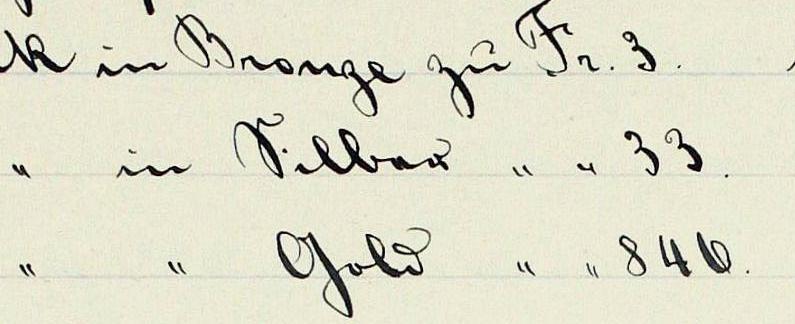 k in Bronze zu Fr. 3.
" in Silber " " 33.
" " Gold " " 846.